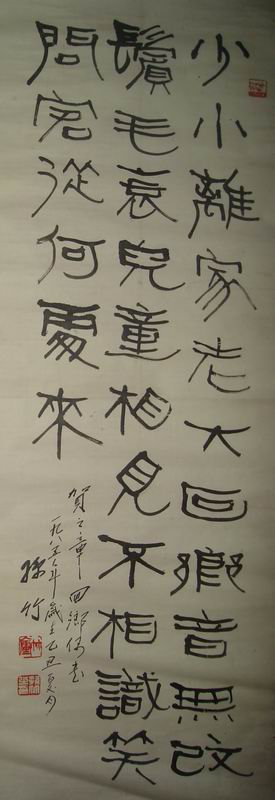 少小離家老大回鄉音無改
鬢毛衰兒童相見不相識笑
問客從何處來
賀之章回鄉偶書
一九八五年歲在乙丑夏月
竹